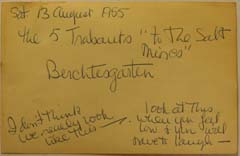 Sat. 13 August 1955
The 5 Trabants "to the Salt
Mines"
Berchtesgarten
I don't think
we really look
like this —
look at this
when you feel
low & you will
have to laugh —